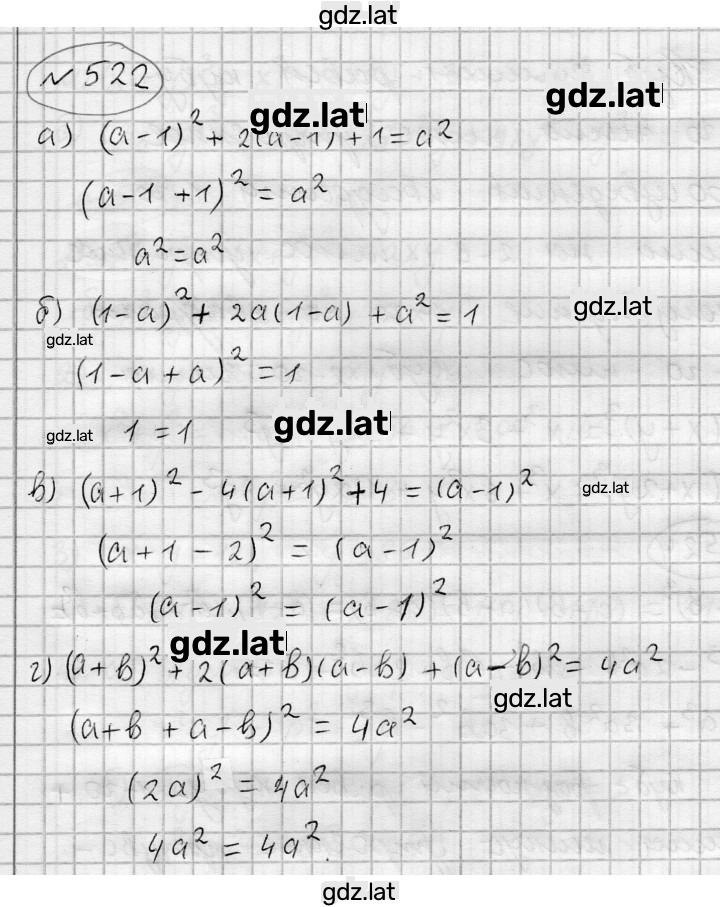 gdz.lat
№ 522
gdz.lat
gdz.lat
а) (a-1)² + 2(a-1) + 1 = a²
(a-1+1)² = a²
a² = a²
б) (1-a)² + 2a(1-a) + a² = 1
gdz.lat
gdz.lat
(1-a+a)² = 1
gdz.lat
gdz.lat 1 = 1
в) (a+1)² - 4(a+1)² + 4 = (a-1)²
gdz.lat
(a+1-2)² = (a-1)²
(a-1)² = (a-1)²
gdz.lat
г) (a+b)² + 2(a+b)(a-b) + (a-b)² = 4a²
gdz.lat
(a+b+a-b)² = 4a²
(2a)² = 4a²
4a² = 4a².
gdz.lat